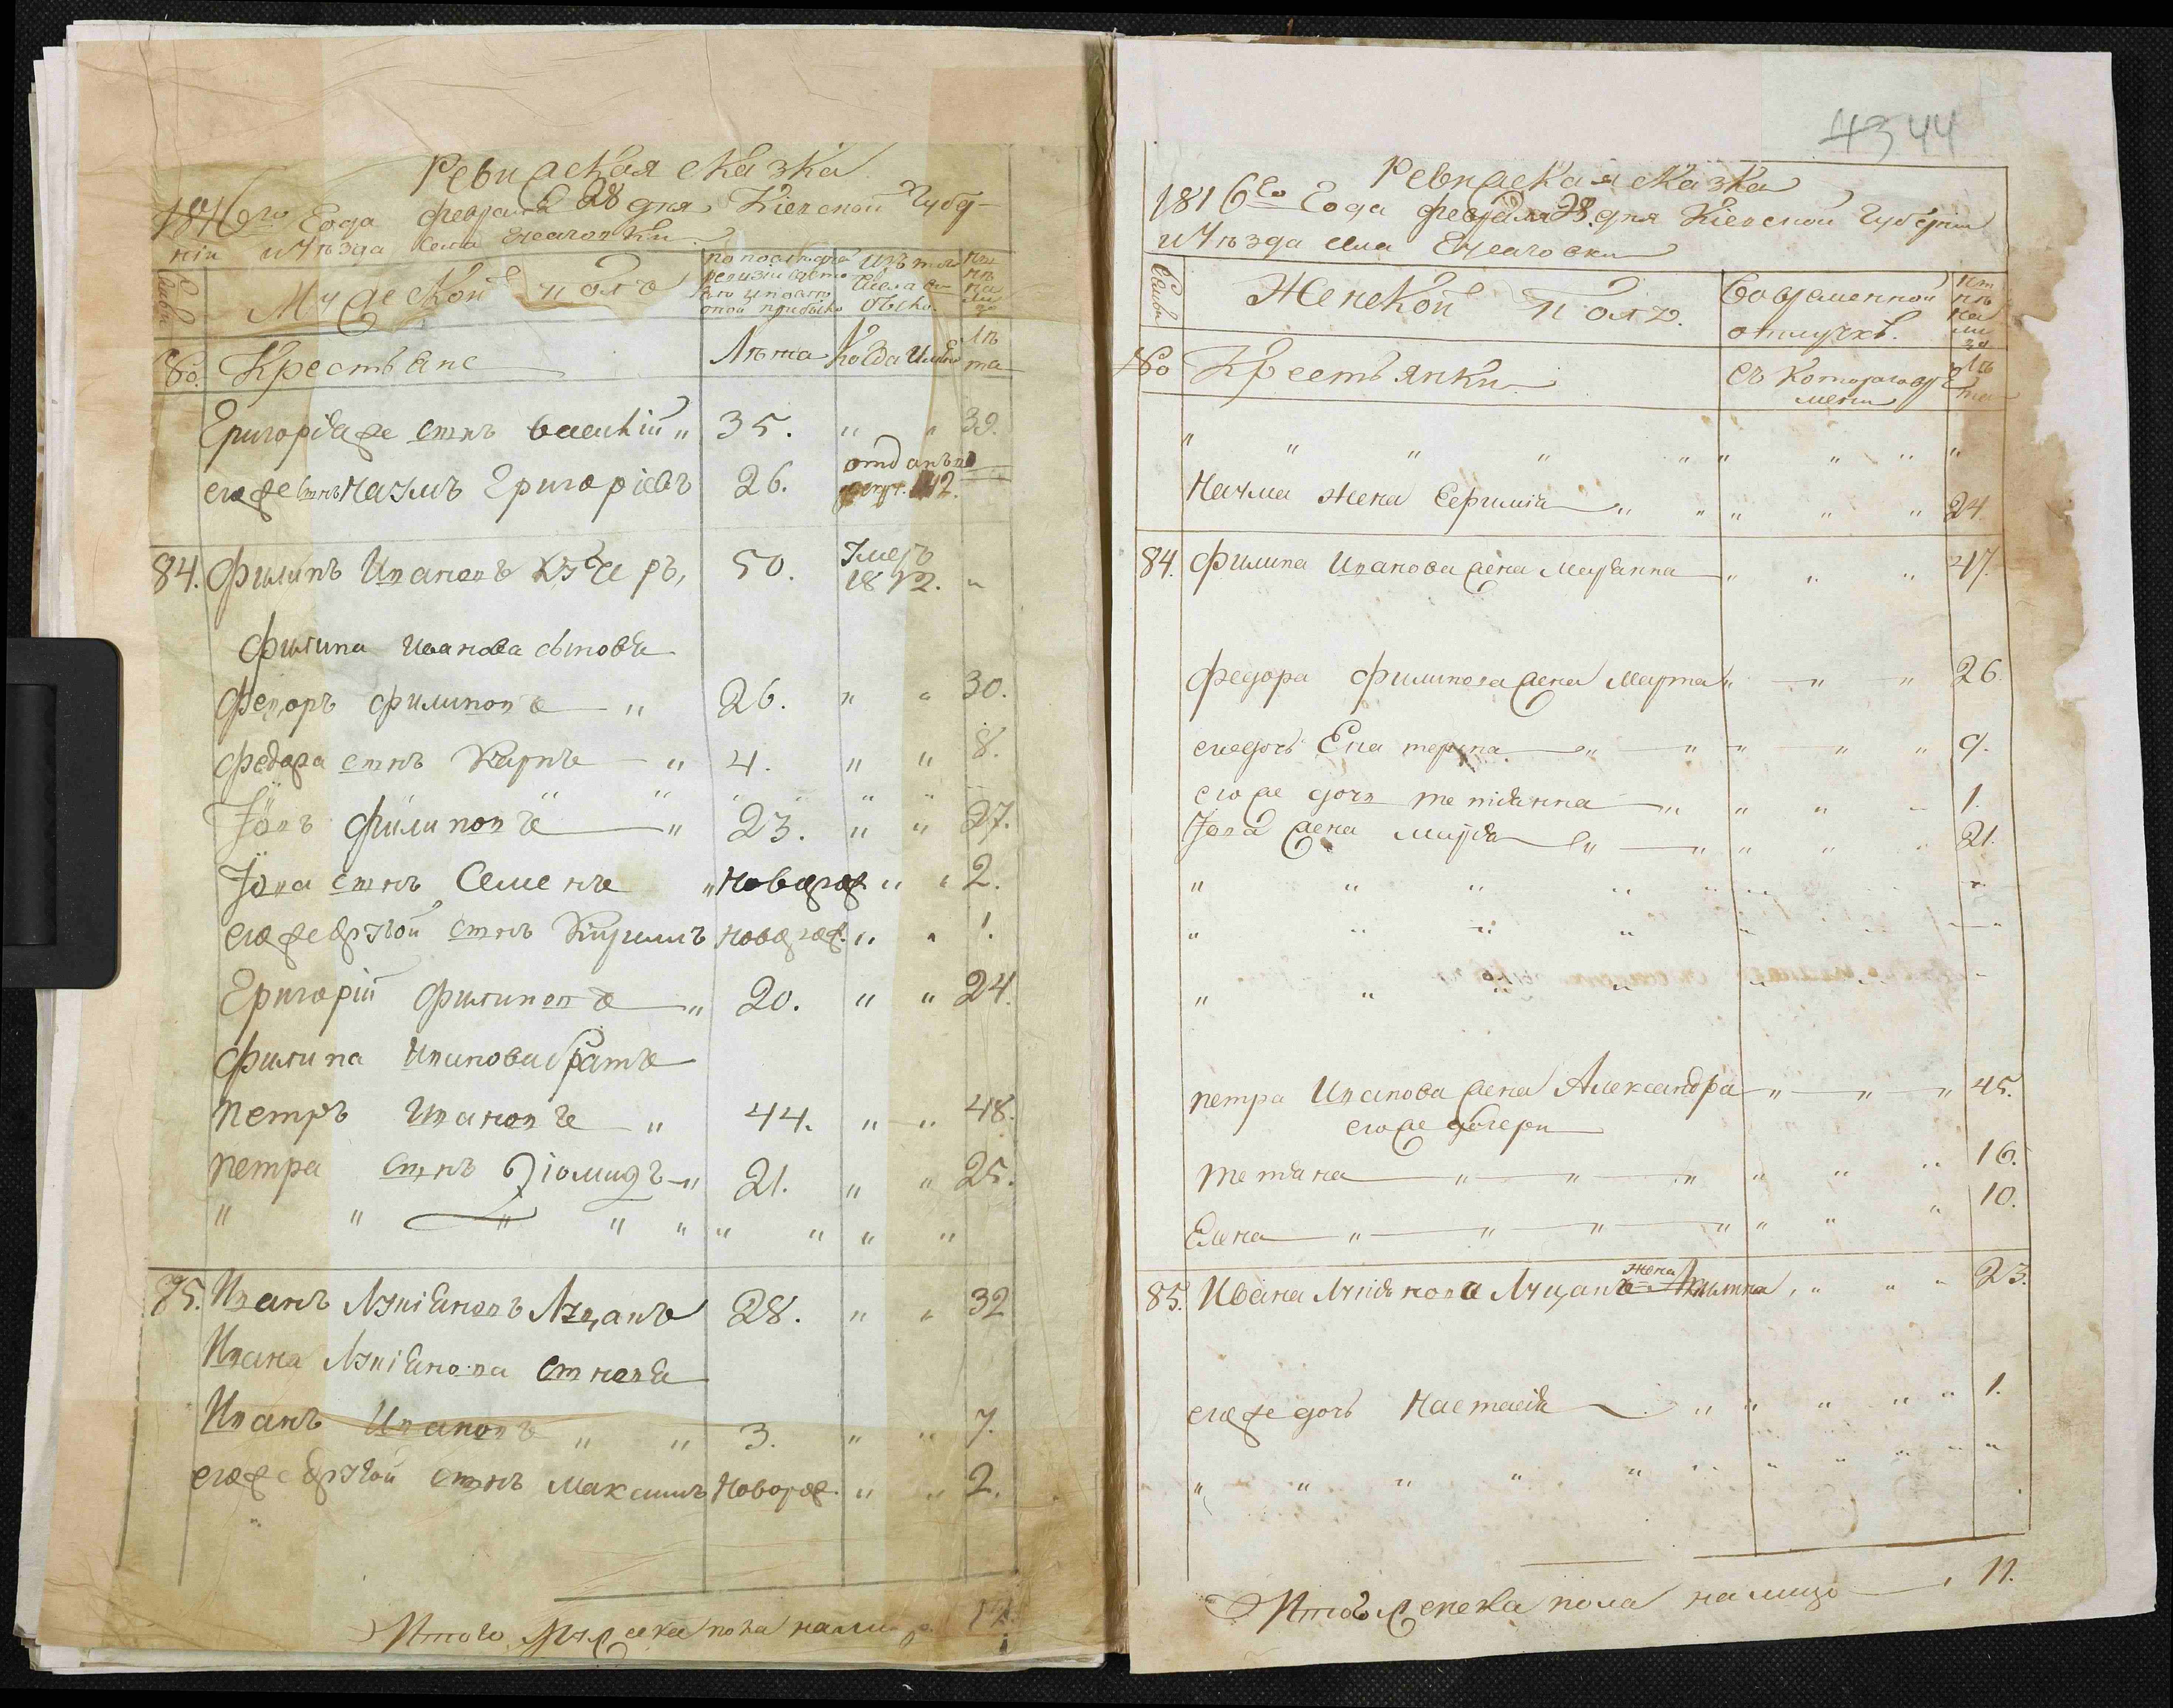 Ревизская сказка
1816го Года февраля 28 дня Кіевской Губер-
ніи и Уѣзда села
Мужеской полъ
по последней ревизіи состояло и после оной прибыло
Изъ того числа выбыло
Ныне на лицо
№ Крестьяне
Лѣта
Когда имянно
Лѣта
Григорія же сынъ василій " 35. " " 39.
его же сынъ Наумъ Григоріевъ 26. отданъ в рекрут. 1812.
84. Филипъ Ивановъ 50. Умеръ 1812. "
Филипа Иванова сыновья
Федоръ Филиповъ " 26. " " 30.
Федора сынъ Карпъ " 4. " " 8.
Іовъ Филиповъ " 23. " " 27.
Іова сынъ Семенъ " новорож. " " 2.
его же другой сынъ Кирилъ новорож. " " 1.
Григорій Филиповъ " 20. " " 24.
Филипа Иванова братъ
Петръ Ивановъ " 44. " " 48.
Петра сынъ Діомидъ " 21. " " 25.
85. Иванъ Лукіяновъ Луцанъ 28. " " 32
Ивана Лукіянова сыновья
Иванъ Ивановъ " " 3. " " 7.
его же другой сынъ Максимъ Новорож. " " 2.
Итого мужеска пола налицо
43 44
Ревизская сказка
1816го Года февраля 28. дня Кіевской Губерніи
и Уѣзда села
Семьи
Женской полъ.
Во временной отлучкѣ.
Ныне на лицо
№ Крестьянки
съ которого времени
Лѣта
Наума жена Евфимія " " " " " 24.
84. Филипа Иванова жена Марянна " " " 47.
Федора Филипова жена Марта " " " 26.
его дочь Екатерина " " " " " 9.
его же дочь Тетіянна " " " " 1.
Іова жена Марія " " " " " 21.
Петра Иванова жена Александра " " " 45.
его же дочери
Тетяна " " " " " " 16.
Елена " " " " " " " 10.
85. Ивана Лукіянова Луцана жена " " " 23.
его же дочь Настасія " " " " " 1.
Итого женска пола налицо 11.